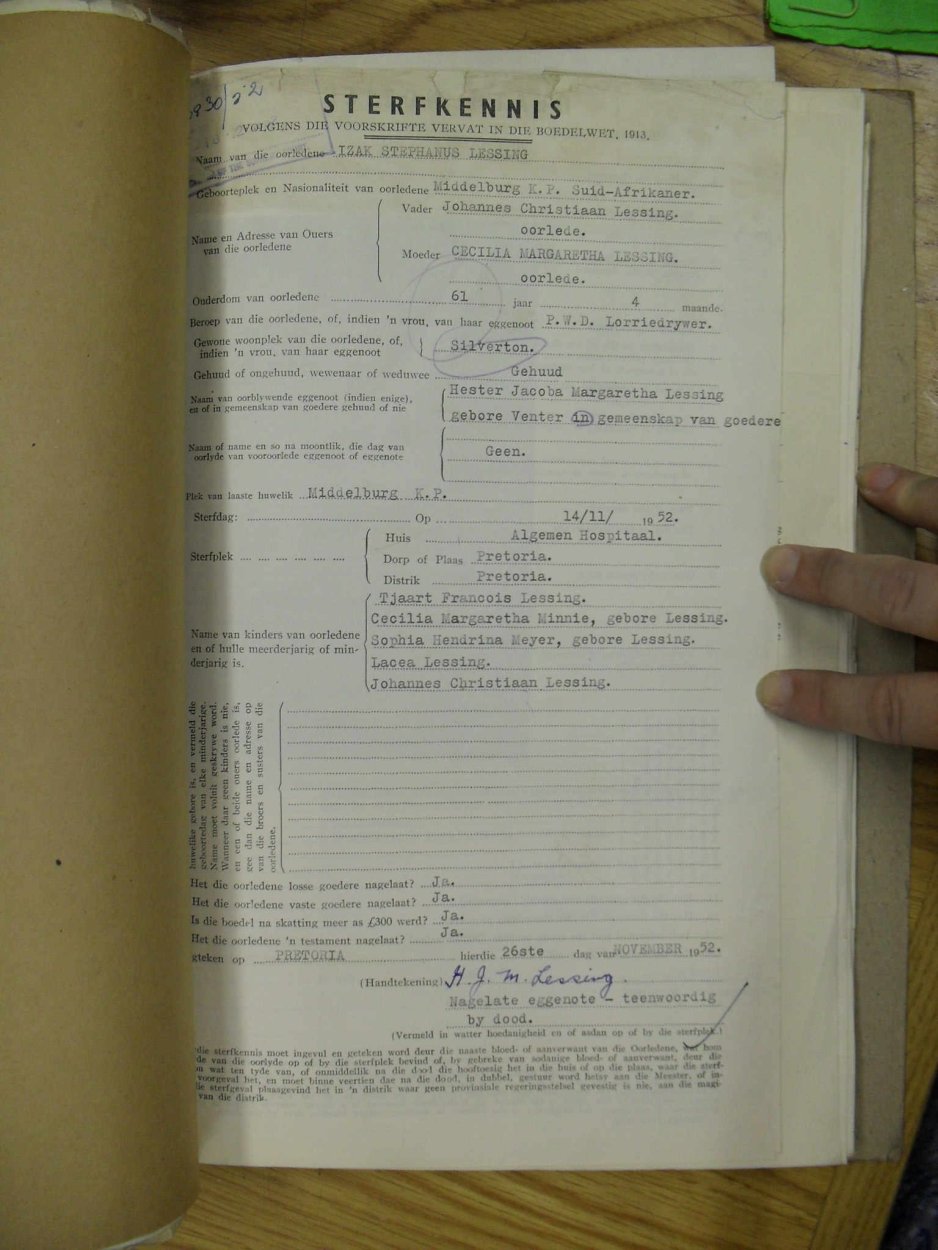 30/52
STERFKENNIS
VOLGENS DIE VOORSKRIFTE VERVAT IN DIE BOEDELWET, 1913.
Naam van die oorledene IZAK STEPHANUS LESSING
Geboorteplek en Nasionaliteit van oorledene Middelburg K.P. Suid-Afrikaner.
Name en Adresse van Ouers van die oorledene
Vader Johannes Christiaan Lessing.
oorlede.
Moeder CECILIA MARGARETHA LESSING.
oorlede.
Ouderdom van oorledene 61 jaar 4 maande.
Beroep van die oorledene, of, indien 'n vrou, van haar eggenoot P.W.D. Lorriedrywer.
Gewone woonplek van die oorledene, of,
indien 'n vrou, van haar eggenoot Silverton.
Gehuud of ongehuud, wewenaar of weduwee Gehuud
Naam van oorblywende eggenoot (indien enige), Hester Jacoba Margaretha Lessing
en of in gemeenskap van goedere gehuud of nie gebore Venter in gemeenskap van goedere
Naam of name en so na moontlik, die dag van
oorlyde van vooroorlede eggenoot of eggenote Geen.
Plek van laaste huwelik Middelburg K.P.
Sterfdag: Op 14/11/ 1952.
Sterfplek
Huis Algemen Hospitaal.
Dorp of Plaas Pretoria.
Distrik Pretoria.
Name van kinders van oorledene
en of hulle meerderjarig of min-
derjarig is.
Tjaart Francois Lessing.
Cecilia Margaretha Minnie, gebore Lessing.
Sophia Hendrina Meyer, gebore Lessing.
Lacea Lessing.
Johannes Christiaan Lessing.
huwelike gebore is, en vermeld die
geboortedag van elke minderjarige.
Name moet voluit geskrywe word.
Wanneer daar geen kinders is nie,
en een of beide ouers oorlede is,
gee dan die name en adresse op
van die broers en susters van die
oorledene.
Het die oorledene losse goedere nagelaat? Ja.
Het die oorledene vaste goedere nagelaat? Ja.
Is die boedel na skatting meer as £300 werd? Ja.
Het die oorledene 'n testament nagelaat? Ja.
gteken op PRETORIA hierdie 26ste dag van NOVEMBER 1952.
(Handtekening) H. J. M. Lessing.
Nagelate eggenote - teenwoordig
by dood.
(Vermeld in watter hoedanigheid en of aidan op of by die sterfplek.)
die sterfkennis moet ingevul en geteken word deur die naaste bloed- of aanverwant van die Oorledene, wat hom
de van die oorlyde op of by die sterfplek bevind of, by gebreke van sodanige bloed- of aanverwant, deur die
n wat ten tyde van, of onmiddellik na die dood die hooftoesig het in die huis of op die plaas, waar die sterf-
voorgeval het, en moet binne veertien dae na die dood, in dubbel, gestuur word hetsy aan die Meester, of in-
ie sterfgeval plaasgevind het in 'n distrik waar geen provinsiale regeringstelsel gevestig is nie, aan die magi-
van die distrik.